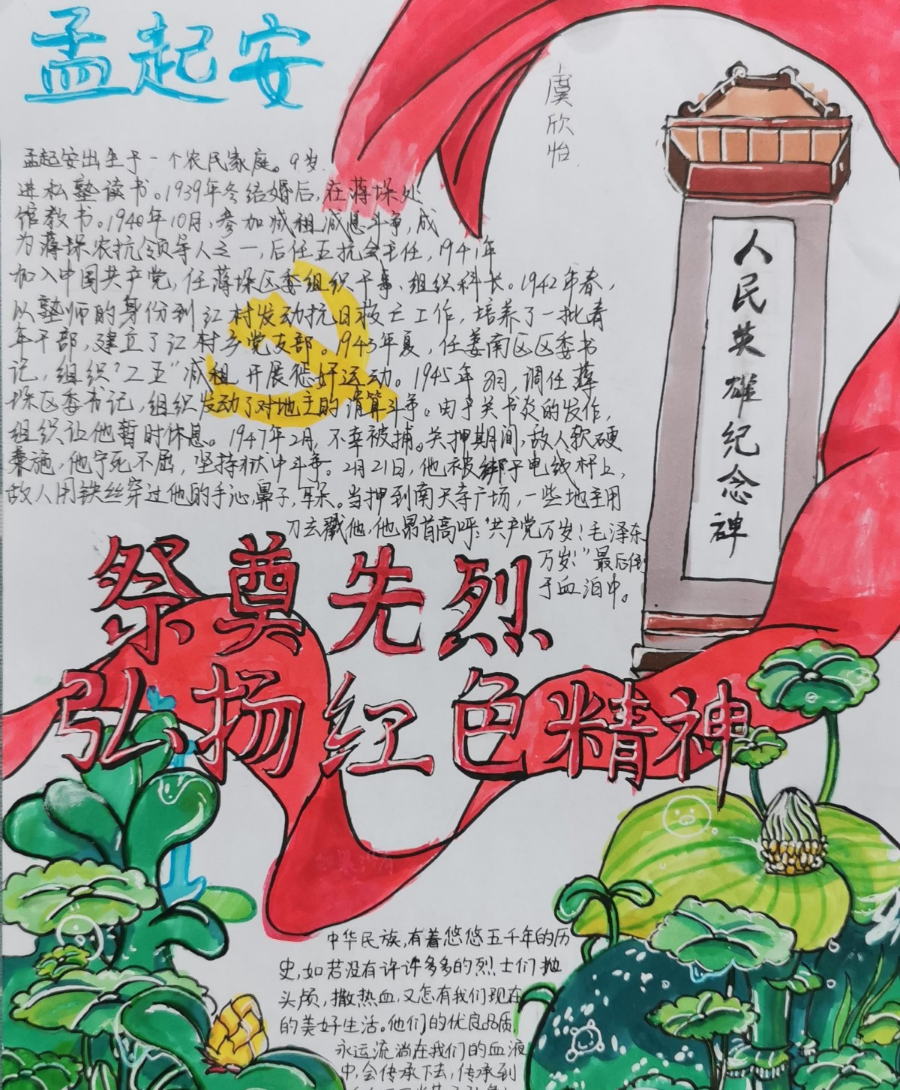 孟起安
虞欣怡
孟起安出生于一个农民家庭。9岁
进私塾读书。1939年冬结婚后,在蒋垛处
馆教书。1940年10月,参加减租减息斗争,成
为蒋垛农抗领导人之一,后任五抗会主任,1941年
加入中国共产党,任蒋垛区委组织干事、组织科长。1942年春,
以塾师的身份到江村发动抗日救亡工作,培养了一批青
年干部,建立了江村乡党支部。1943年夏,任姜南区区委书
记,组织"二五"减租,开展惩奸运动。1945年8月,调任蒋
垛区委书记,组织发动了对地主的清算斗争。由于关节炎的发作,
组织让他暂时休息。1947年2月,不幸被捕。关押期间,敌人软硬
兼施,他宁死不屈,坚持狱中斗争。2月21日,他被绑于电线杆上,
敌人用铁丝穿过他的手心、鼻子、耳朵。当押到南天寺广场,一些地主用
刀去戳他,他昂首高呼:"共产党万岁!毛泽东
万岁!"最后倒
于血泊中。
人民英雄纪念碑
祭奠先烈
弘扬红色精神
中华民族,有着悠悠五千年的历
史,如若没有许许多多的烈士们抛
头颅,撒热血,又怎有我们现在
的美好生活。他们的优良品质,
永远流淌在我们的血液
中,会传承下去,传承到